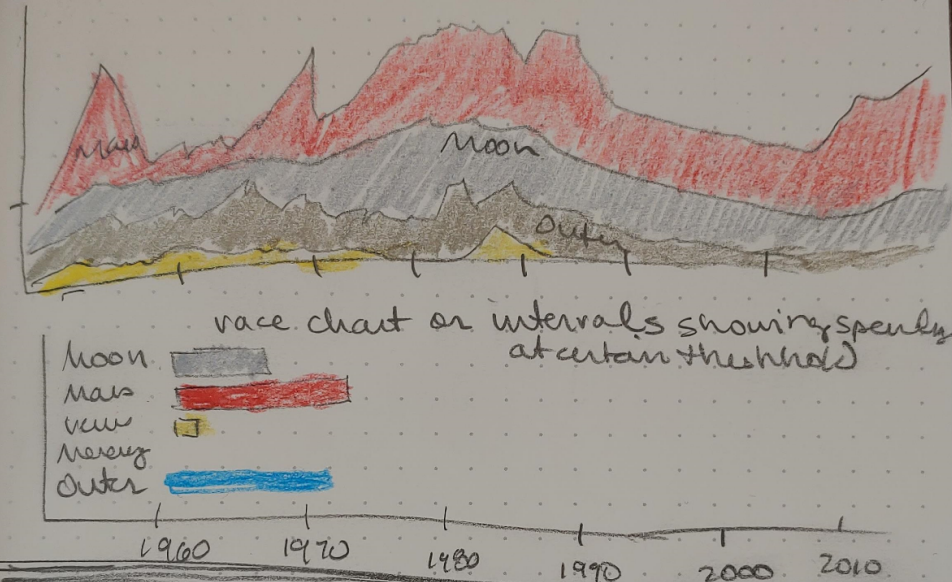 Mars
Moon
Outer
race chart or intervals showing spending
at certain threshhold
Moon
Mars
Venus
Mercury
Outer
1960 1970 1980 1990 2000 2010